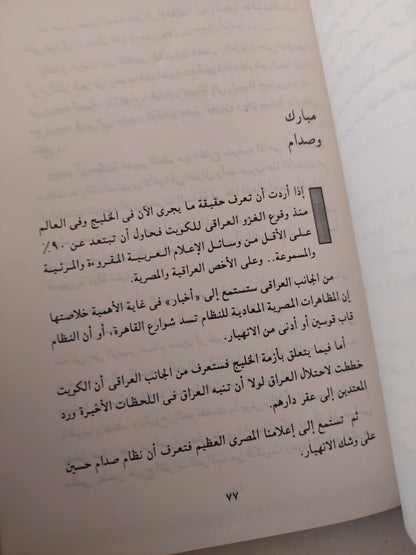 مبارك
وصدام
إذا أردت أن تعرف حقيقة ما يجرى الآن فى الخليج وفى العالم
منذ وقوع الغزو العراقى للكويت فحاول أن تبتعد عن ٩٠٪
على الأقل من وسائل الإعلام العربية المقروءة والمرئية
والمسموعة.. وعلى الأخص العراقية والمصرية.
من الجانب العراقى ستستمع إلى «أخبار» فى غاية الأهمية خلاصتها
إن المظاهرات المصرية المعادية للنظام تسد شوارع القاهرة، أو أن النظام
قاب قوسين أو أدنى من الانهيار.
أما فيما يتعلق بأزمة الخليج فستعرف من الجانب العراقى أن الكويت
خططت لاحتلال العراق لولا أن تنبه العراق فى اللحظات الأخيرة ورد
المعتدين إلى عقر دارهم.
ثم تستمع إلى إعلامنا المصرى العظيم فتعرف أن نظام صدام حسين
على وشك الانهيار.
٧٧